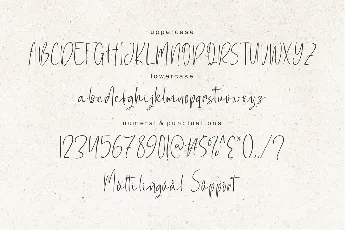 uppercase
ABCDEFGHIJKLMNOPQRSTUVWXYZ
lowercase
abcdefghijklmnopqrstuvwxyz
numeral & punctuations
1234567890!@#$%&*(),./?
Multilingual Support